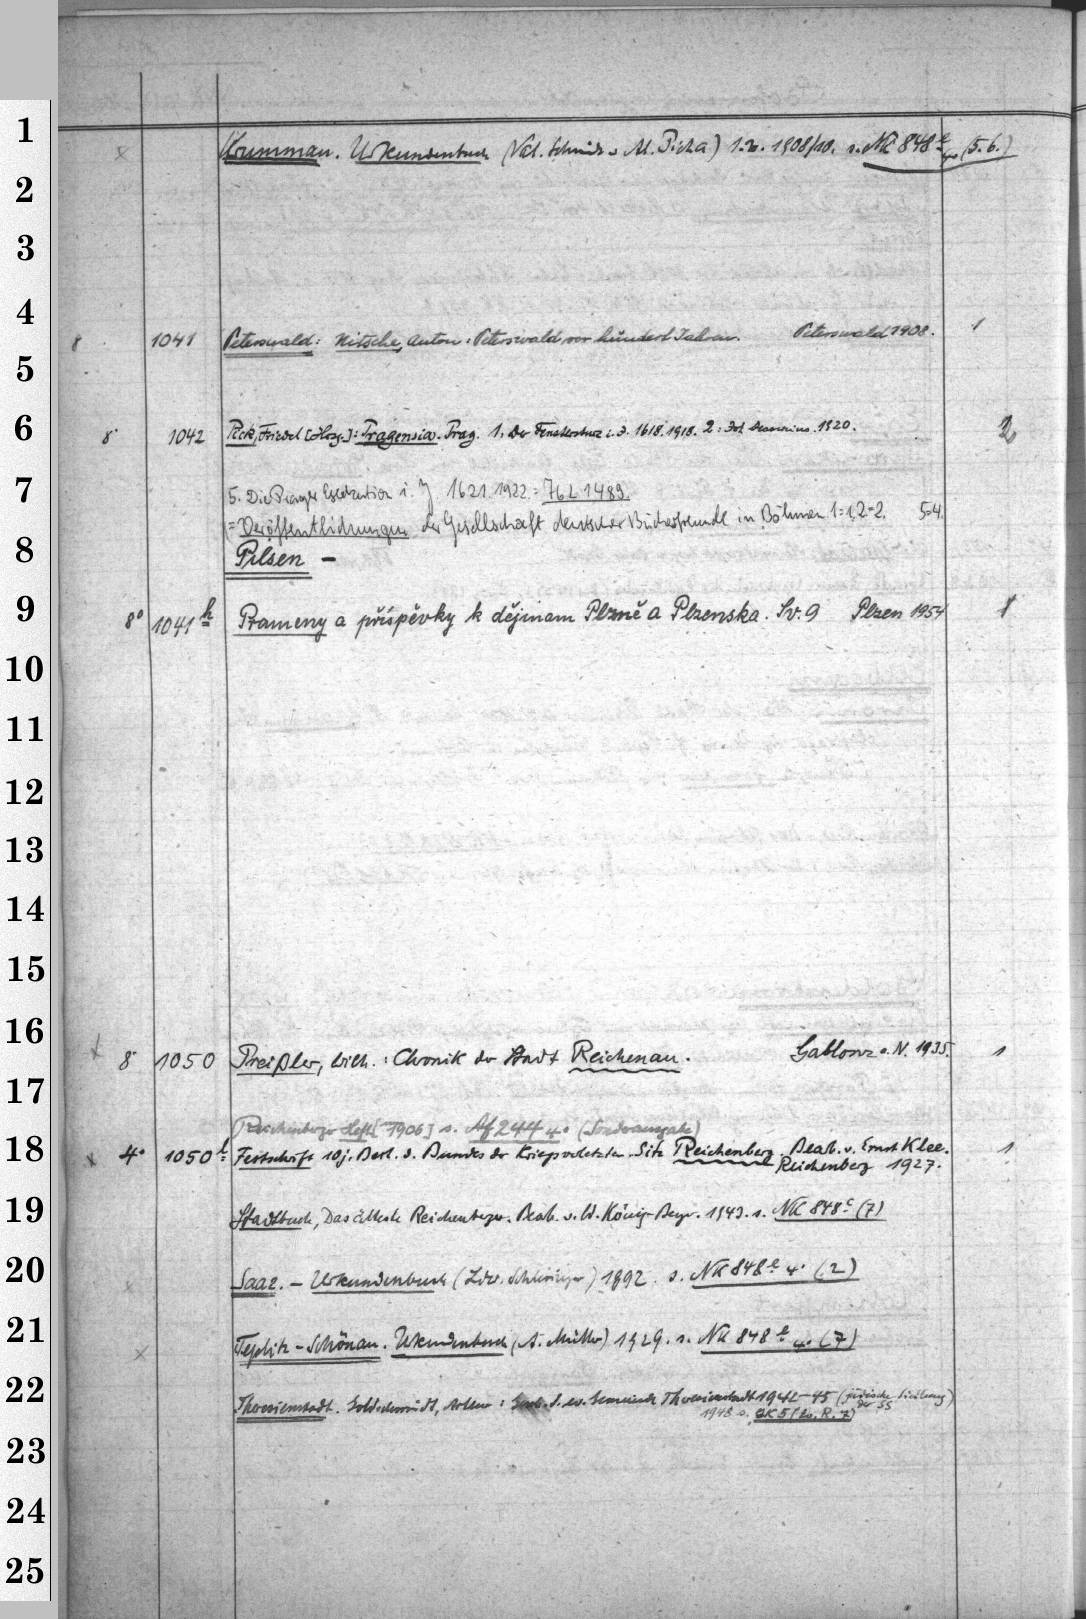 1 Krummau. Urkundenbuch (Val. Schmidt u. Al. Picha) 1.2. 1908/10. s. NK 848 e 4° (5.6.)
2
3
4
8 1041 Peterswald: Nitsche, Anton: Peterswald vor hundert Jahren. Peterswald 1908. 1
5
6 8° 1042 Pick, Friedel [Hrsg.]: Pragensia. Prag. 1. Der Fenstersturz i. J. 1618. 1918. 2: Joh. Jessenius. 1920. 2
7 5. Die Prager Exekution i. J. 1621. 1922. = 76 L 1489.
(= Veröffentlichungen der Gesellschaft deutscher Bücherfreunde in Böhmen 1=1, 2=2. 5=4.
8 Pilsen –
9 8° 1041 h Prameny a příspěvky k dějinam Plzně a Plzenska. Sv. 9 Plzen 1954 1
10
11
12
13
14
15
16
8° 1050 Preißler, Wilh.: Chronik der Stadt Reichenau. Gablonz a. N. 1935. 1
17
(Reichenberger Heft [1906] s. Af 244 4° (Sonderausgabe)
18 4° 1050 Festschrift 10j. Best. d. Bundes der Kriegsverletzten Sitz Reichenberg. Bearb. v. Ernst Klee.
Reichenberg 1927. 1
19 Stadtbuch, Das älteste Reichenberger. Bearb. v. W. König-Beyer. 1943. s. NK 848 c (7)
20 Saaz. – Urkundenbuch (Ldw. Schlesinger) 1892. s. NK 848 e 4° (2)
21 Teplitz-Schönau. Urkundenbuch (A. Müller) 1929. s. NK 848 e 4° (7)
22 Theresienstadt. Goldschmidt, Arthur: Gesch. d. ev. Gemeinde Theresienstadt 1942–45 (jüdische Siedlung
der SS)
1948 s.
23
24
25